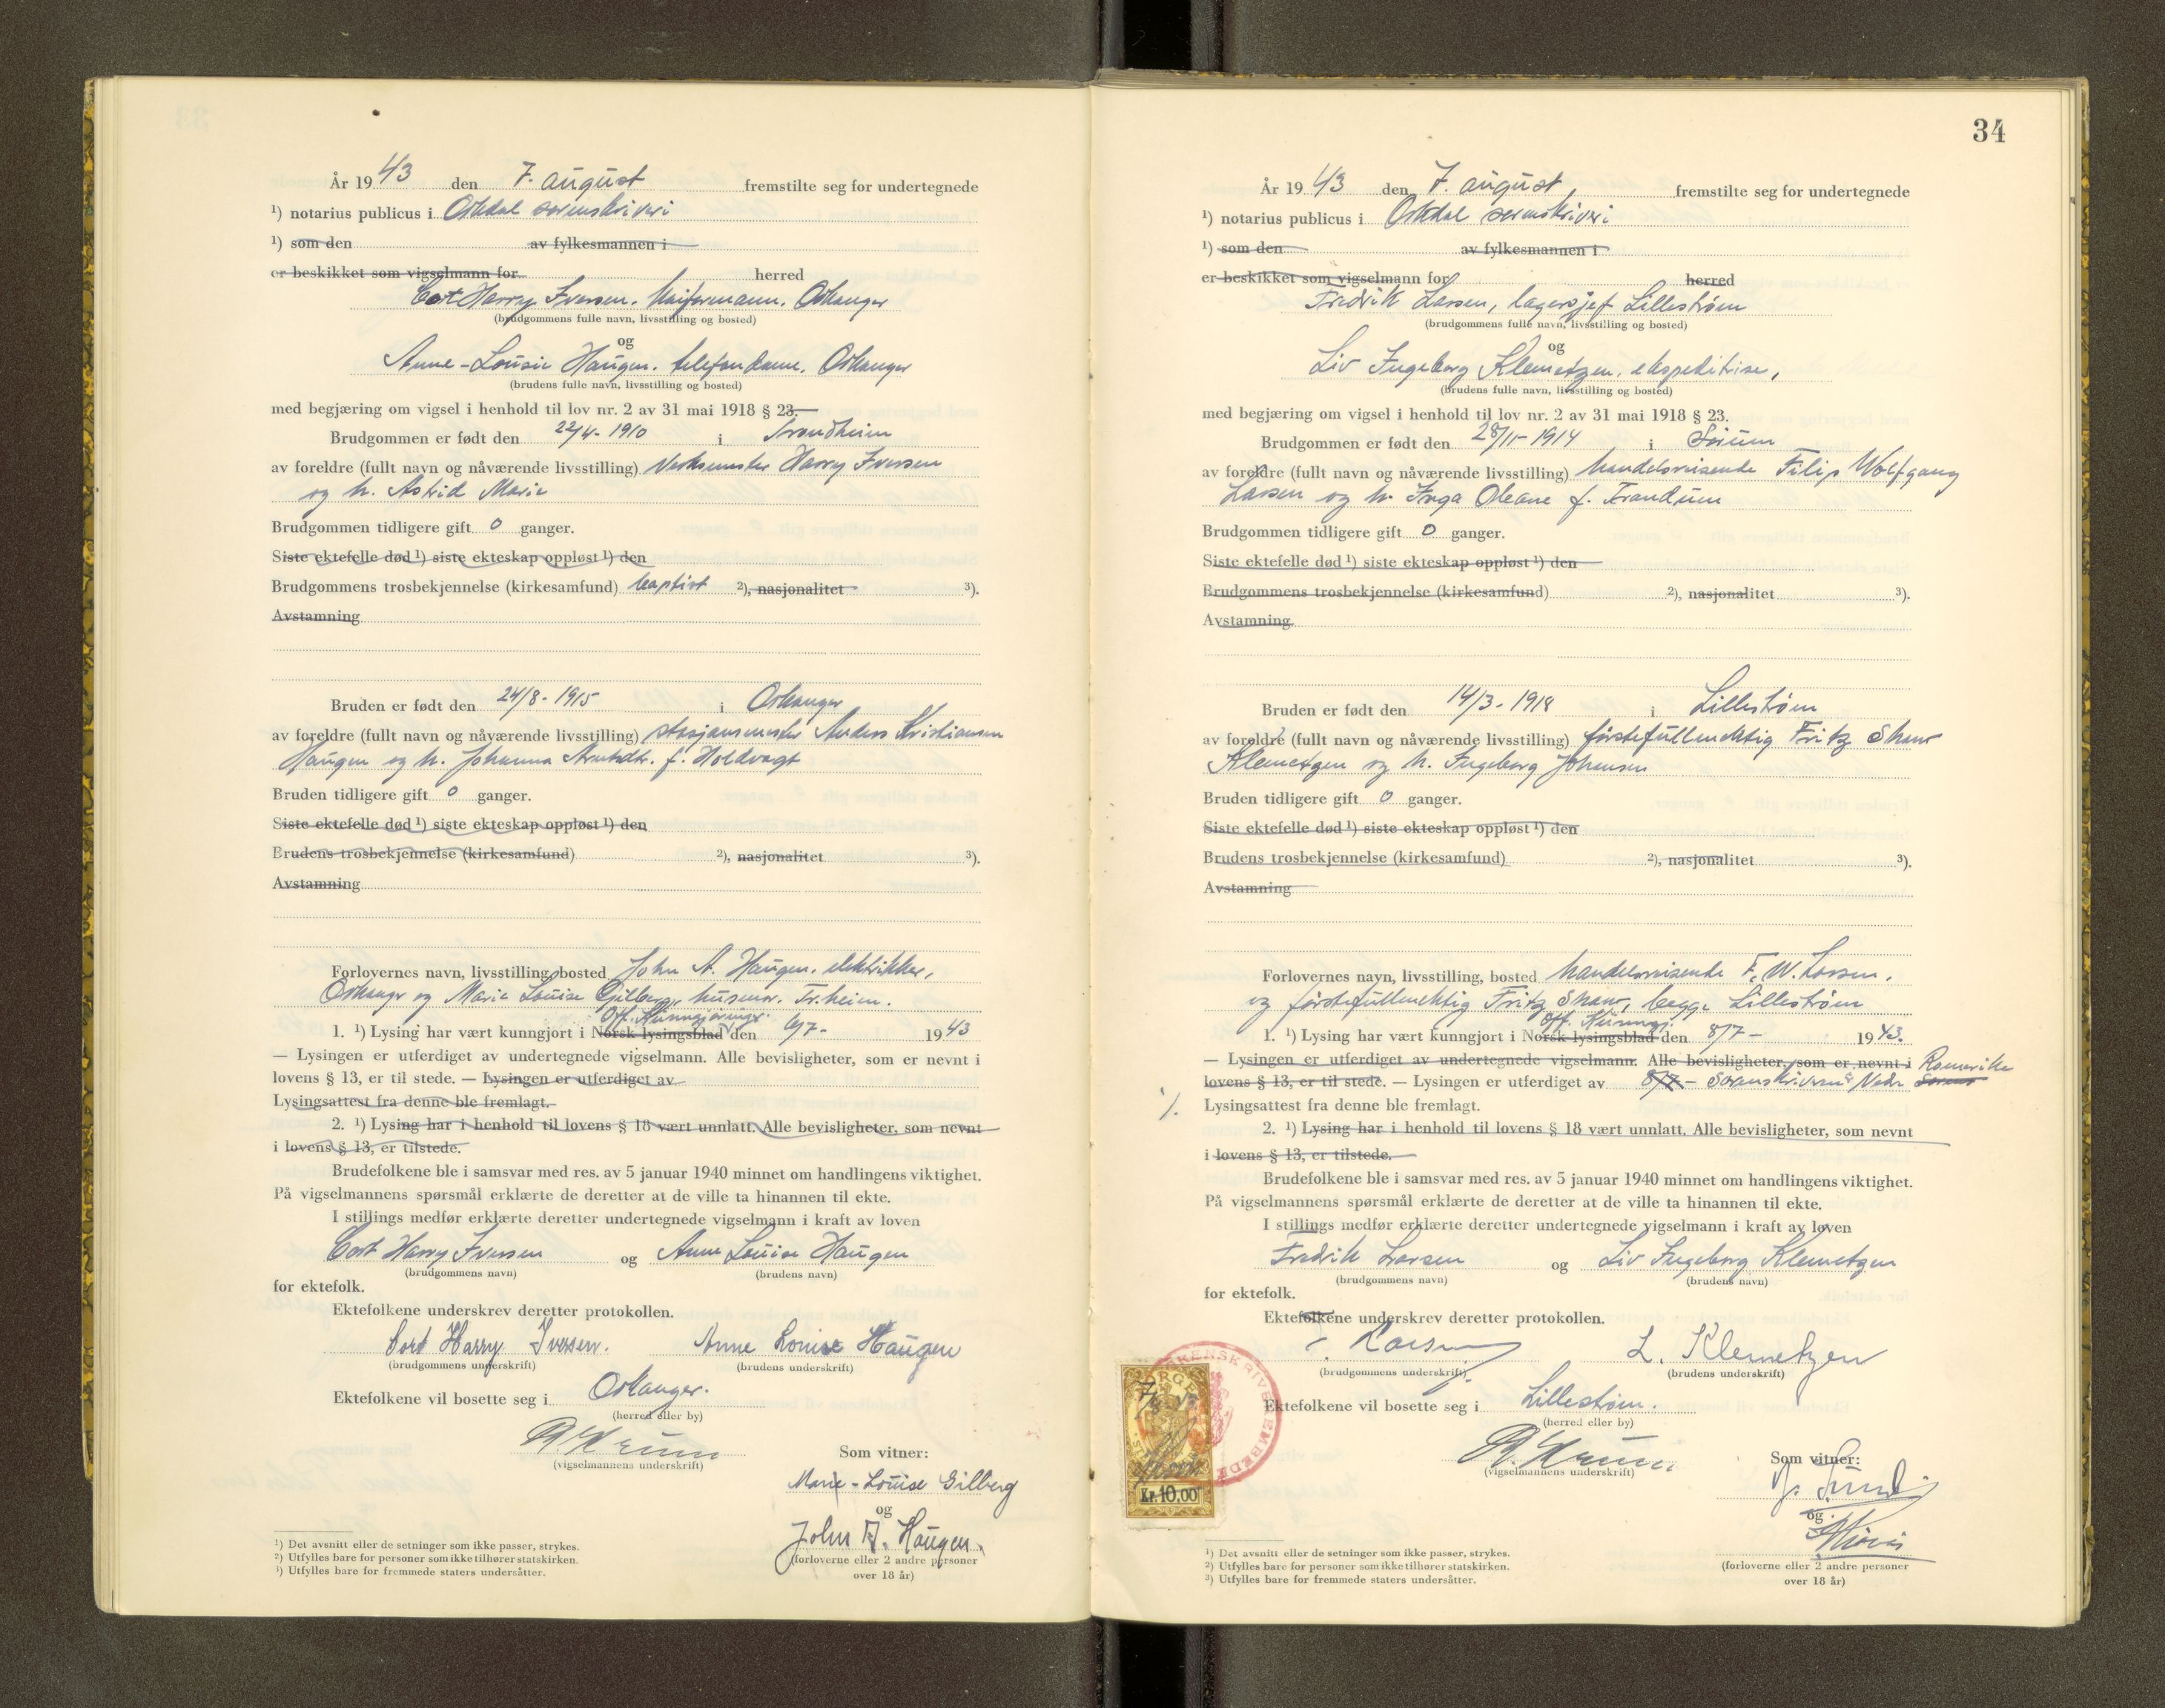 År 19 43 den 7. august fremstilte seg for undertegnede
¹) notarius publicus i Orkdal sorenskriveri
¹) som den av fylkesmannen i
er beskikket som vigselmann for herred
Cort Harry Iversen. Orkanger
(brudgommens fulle navn, livsstilling og bosted)
og
Anne-Louise Haugen. telefondame. Orkanger
(brudens fulle navn, livsstilling og bosted)
med begjæring om vigsel i henhold til lov nr. 2 av 31 mai 1918 § 23.
Brudgommen er født den 22/4-1910 i Trondheim
av foreldre (fullt navn og nåværende livsstilling) Verksmester Harry Iversen
og h. Astrid Marie
Brudgommen tidligere gift 0 ganger.
Siste ektefelle død ¹) siste ekteskap oppløst ¹) den
Brudgommens trosbekjennelse (kirkesamfund) baptist ²), nasjonalitet ³).
Avstamning
Bruden er født den 24/8-1915 i Orkanger
av foreldre (fullt navn og nåværende livsstilling) stasjonsmester Anders Kristiansen
Haugen og h. Johanna f. Holdvagt
Bruden tidligere gift 0 ganger.
Siste ektefelle død ¹) siste ekteskap oppløst ¹) den
Brudens trosbekjennelse (kirkesamfund) ²), nasjonalitet ³).
Avstamning
Forlovernes navn, livsstilling, bosted John A. Haugen. elektriker,
Orkanger og Marie Louise Gilberg, husmor. Tr.heim.
Off. Kunngjøringer
1. ¹) Lysing har vært kunngjort i Norsk lysingsblad den 6/7- 1943
— Lysingen er utferdiget av undertegnede vigselmann. Alle bevisligheter, som er nevnt i
lovens § 13, er til stede. — Lysingen er utferdiget av
Lysingsattest fra denne ble fremlagt.
2. ¹) Lysing har i henhold til lovens § 18 vært unnlatt. Alle bevisligheter, som nevnt
i lovens § 13, er tilstede.
Brudefolkene ble i samsvar med res. av 5 januar 1940 minnet om handlingens viktighet.
På vigselmannens spørsmål erklærte de deretter at de ville ta hinannen til ekte.
I stillings medfør erklærte deretter undertegnede vigselmann i kraft av loven
Cort Harry Iversen og Anne Louise Haugen
(brudgommens navn) (brudens navn)
for ektefolk.
Ektefolkene underskrev deretter protokollen.
Cort Harry Iversen. Anne Louise Haugen
(brudgommens underskrift) (brudens underskrift)
Ektefolkene vil bosette seg i Orkanger.
(herred eller by)
(vigselmannens underskrift)
Som vitner:
Marie-Louise Gilberg
og
John A. Haugen.
(forloverne eller 2 andre personer
over 18 år)
¹) Det avsnitt eller de setninger som ikke passer, strykes.
²) Utfylles bare for personer som ikke tilhører statskirken.
³) Utfylles bare for fremmede staters undersåtter.
34
År 19 43 den 7. august, fremstilte seg for undertegnede
¹) notarius publicus i Orkdal sorenskriveri
¹) som den av fylkesmannen i
er beskikket som vigselmann for herred
Fredrik Larsen, lagersjef Lillestrøm
(brudgommens fulle navn, livsstilling og bosted)
og
Liv Ingeborg Klemetzen, ekspeditrise,
(brudens fulle navn, livsstilling og bosted)
med begjæring om vigsel i henhold til lov nr. 2 av 31 mai 1918 § 23.
Brudgommen er født den 28/11-1914 i Sørum
av foreldre (fullt navn og nåværende livsstilling) handelsreisende Filip Wolfgang
Larsen og h. Inga Oleane f. Frandum
Brudgommen tidligere gift 0 ganger.
Siste ektefelle død ¹) siste ekteskap oppløst ¹) den
Brudgommens trosbekjennelse (kirkesamfund) ²), nasjonalitet ³).
Avstamning
Bruden er født den 14/3-1918 i Lillestrøm
av foreldre (fullt navn og nåværende livsstilling) førstefullmektig Fritz Shaw
Klemetzen og h. Ingeborg Johansen
Bruden tidligere gift 0 ganger.
Siste ektefelle død ¹) siste ekteskap oppløst ¹) den
Brudens trosbekjennelse (kirkesamfund) ²), nasjonalitet ³).
Avstamning
Forlovernes navn, livsstilling, bosted handelsreisende F. W. Larsen,
og førstefullmektig Fritz Shaw, begge Lillestrøm
Off. Kunngj.
1. ¹) Lysing har vært kunngjort i Norsk lysingsblad den 8/7- 1943.
— Lysingen er utferdiget av undertegnede vigselmann. Alle bevisligheter, som er nevnt i Romerike
lovens § 13, er til stede. — Lysingen er utferdiget av 8/7- Sorenskriveren i Nedr.
Lysingsattest fra denne ble fremlagt.
2. ¹) Lysing har i henhold til lovens § 18 vært unnlatt. Alle bevisligheter, som nevnt
i lovens § 13, er tilstede.
Brudefolkene ble i samsvar med res. av 5 januar 1940 minnet om handlingens viktighet.
På vigselmannens spørsmål erklærte de deretter at de ville ta hinannen til ekte.
I stillings medfør erklærte deretter undertegnede vigselmann i kraft av loven
Fredrik Larsen og Liv Ingeborg Klemetzen
(brudgommens navn) (brudens navn)
for ektefolk.
Ektefolkene underskrev deretter protokollen.
Larsen L. Klemetzen
(brudgommens underskrift) (brudens underskrift)
Ektefolkene vil bosette seg i Lillestrøm.
(herred eller by)
(vigselmannens underskrift)
Som vitner:
og
(forloverne eller 2 andre personer
over 18 år)
Kr. 10,00
¹) Det avsnitt eller de setninger som ikke passer, strykes.
²) Utfylles bare for personer som ikke tilhører statskirken.
³) Utfylles bare for fremmede staters undersåtter.